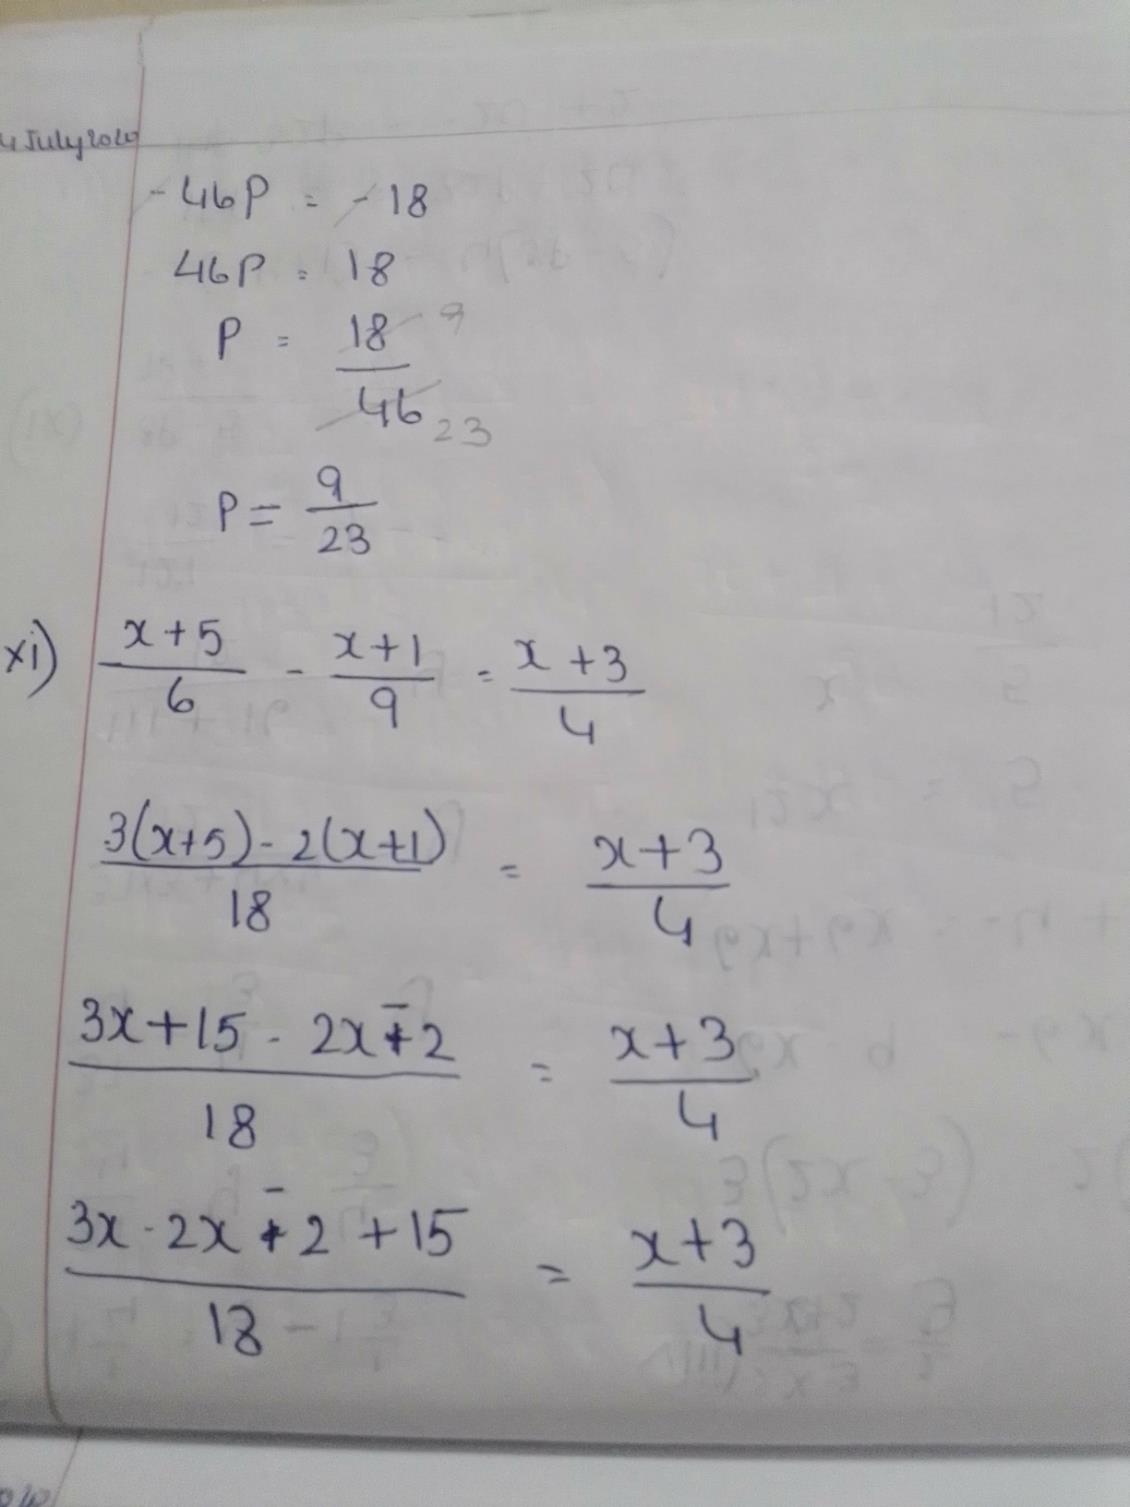 4 July 2020
- 46P = - 18
46P = 18
P = 18/46 9 23
P = 9/23
xi) x+5/6 - x+1/9 = x+3/4
3(x+5) - 2(x+1)/18 = x+3/4
3x+15 - 2x-2/18 = x+3/4
3x - 2x - 2 + 15/18 = x+3/4